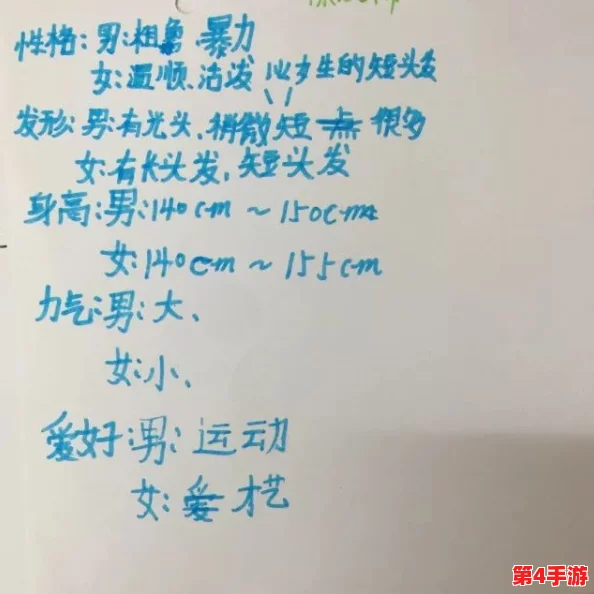 性格:男:粗鲁、暴力
女:温顺、活泼 比女生的短头发
发形:男:有光头、稍微短一点 很多
女:有长头发,短头发
身高:男:140cm~150cm
女:140cm~155cm
力气:男:大、
女:小、
爱好:男:运动
女:爱 才艺
第4手游